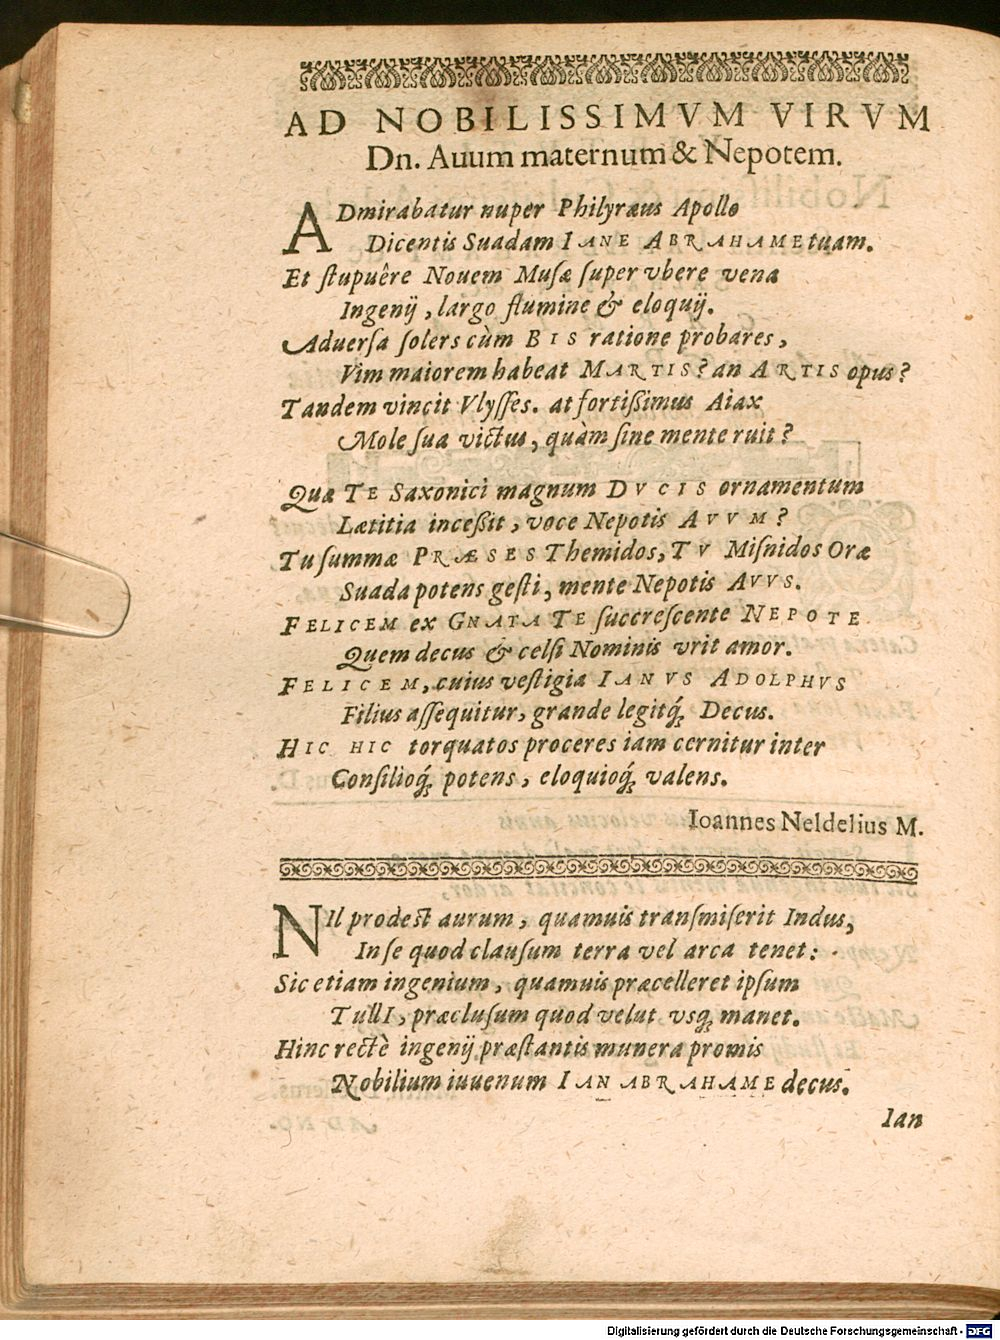 AD NOBILISSIMVM VIRVM
Dn. Auum maternum & Nepotem.
ADmirabatur nuper Philyræus Apollo
Dicentis Suadam IANE ABRAHAME tuam.
Et ſtupuêre Nouem Muſæ ſuper vbere vena
Ingenij, largo flumine & eloquij.
Aduerſa ſolers cùm BIS ratione probares,
Vim maiorem habeat MARTIS? an ARTIS opus?
Tandem vincit Vlyſſes. at fortißimus Aiax
Mole ſua victus, quàm ſine mente ruit?
Quæ TE Saxonici magnum DVCIS ornamentum
Lætitia inceßit, voce Nepotis AVVM?
Tu ſummæ PRÆSES Themidos, TV Miſnidos Oræ
Suada potens geſti, mente Nepotis AVVS.
FELICEM ex GNATA TE ſuccreſcente NEPOTE
Quem decus & celſi Nominis vrit amor.
FELICEM, cuius veſtigia IANVS ADOLPHVS
Filius aſſequitur, grande legitq́; Decus.
HIC HIC torquatos proceres iam cernitur inter
Conſilioq́; potens, eloquioq́; valens.
Ioannes Neldelius M.
NIl prodest aurum, quamuis tranſmiſerit Indus,
In ſe quod clauſum terra vel arca tenet:
Sic etiam ingenium, quamuis præcelleret ipſum
TullI, præcluſum quod velut vsq; manet.
Hinc rectè ingenij præſtantis munera promis
Nobilium iuuenum IAN ABRAHAME decus.
Ian
Digitalisierung gefördert durch die Deutsche Forschungsgemeinschaft - DFG